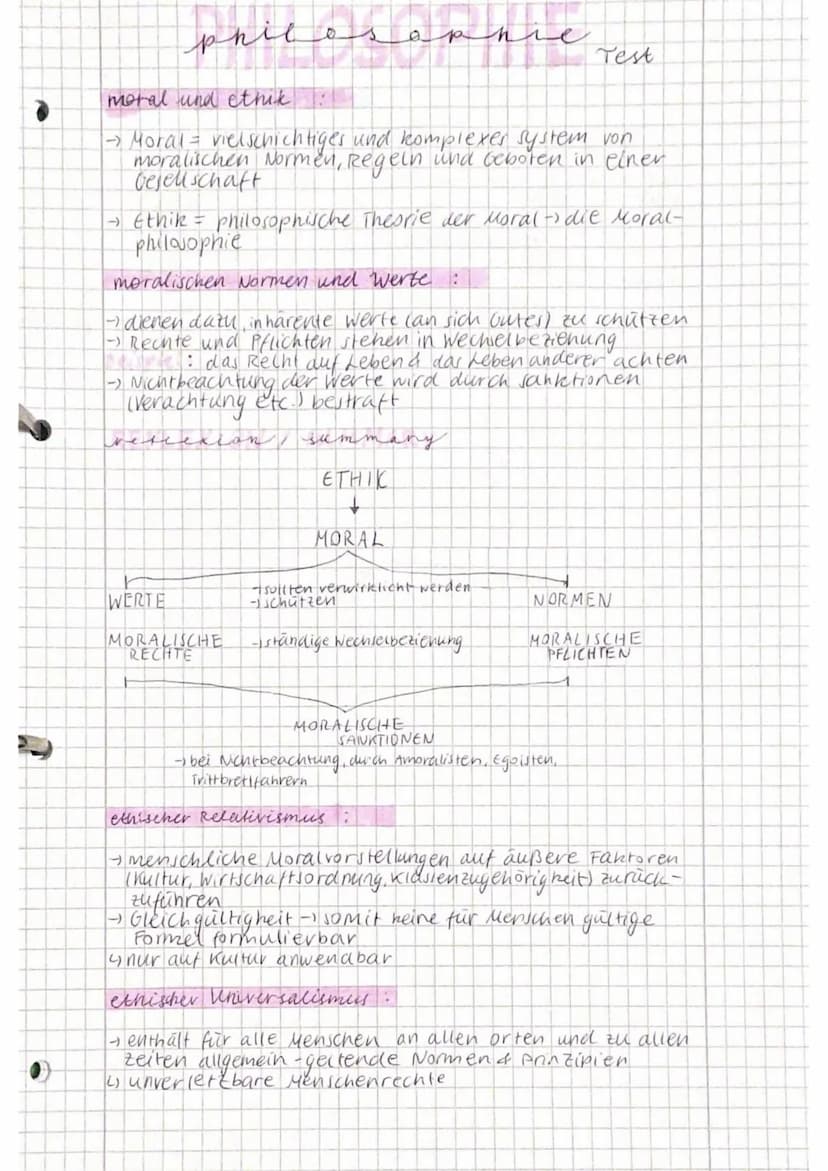 philosophie
Test
moral und ethik :
→ Moral = vielschichtiges und komplexes system von
moralischen Normen, Regeln und Geboten in einer
Gesellschaft
→ Ethik = philosophische Theorie der Moral → die Moral-
philosophie
moralischen Normen und Werte :
→ dienen dazu, inhärente Werte (an sich Gutes) zu schützen
→ Rechte und Pflichten stehen in Wechselbeziehung
: das Recht auf Leben & das Leben anderer achten
→ Nichtbeachtung der Werte wird durch Sanktionen
(Verachtung etc.) bestraft
reflexion / summary
ETHIK
↓
MORAL
WERTE →sollten verwirklicht werden NORMEN
→schützen
MORALISCHE →ständige Wechselbeziehung MORALISCHE
RECHTE PFLICHTEN
MORALISCHE
SANKTIONEN
→ bei Nichtbeachtung, durch Amoralisten, Egoisten,
Trittbrettfahrern
ethischer Relativismus :
→ menschliche Moralvorstellungen auf äußere Faktoren
(Kultur, Wirtschaftsordnung, Klassenzugehörigkeit) zurück-
zuführen
→ Gleichgültigkeit → somit keine für Menschen gültige
Formel formulierbar
↳ nur auf Kultur anwendbar
ethischer Universalismus :
→ enthält für alle Menschen an allen orten und zu allen
zeiten allgemein - geltende Normen & Prinzipien
↳ unverletzbare Menschenrechte